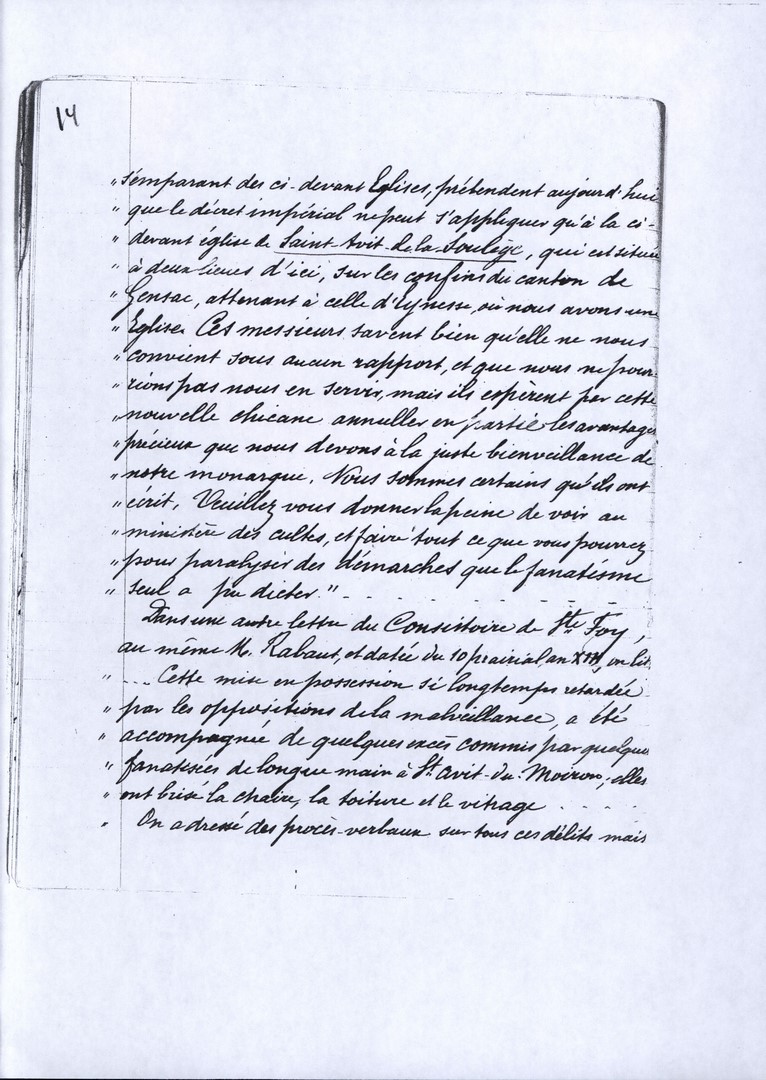 14
" s'emparant des ci-devant Eglises, prétendent aujourd'hui
" que le décret impérial ne peut s'appliquer qu'à la ci-
" devant église de Saint Avit-de-la Soulège, qui est située
" à deux lieues d'ici, sur les confins du canton de
" Gensac, attenant à celle d'Eynesse, où nous avons une
" Eglise. Ces messieurs savent bien qu'elle ne nous
" convient sous aucun rapport, et que nous ne pour-
" rions pas nous en servir, mais ils espèrent par cette
" nouvelle chicane annuller en partie les avantages
" précieux que nous devons à la juste bienveillance de
" notre monarque. Nous sommes certains qu'ils ont
" écrit. Veuillez vous donner la peine de voir au
" ministère des cultes, et faire tout ce que vous pourrez
" pour paralyser des démarches que le fanatisme
" seul a pu dicter." . . . . . . . .
Dans une autre lettre du Consistoire de Ste Foy,
au même M. Rabaut, et datée du 10 prairial an XIII, on lit
" .... Cette mise en possession si longtemps retardée
" par les oppositions de la malveillance, a été
" accompagnée de quelques excès commis par quelques
" fanatisées de longue main à St. Avit-du-Moiron; elles
" ont brisé la chaire, la toiture et le vitrage . . . .
" On a dressé des procès-verbaux sur tous ces délits mais